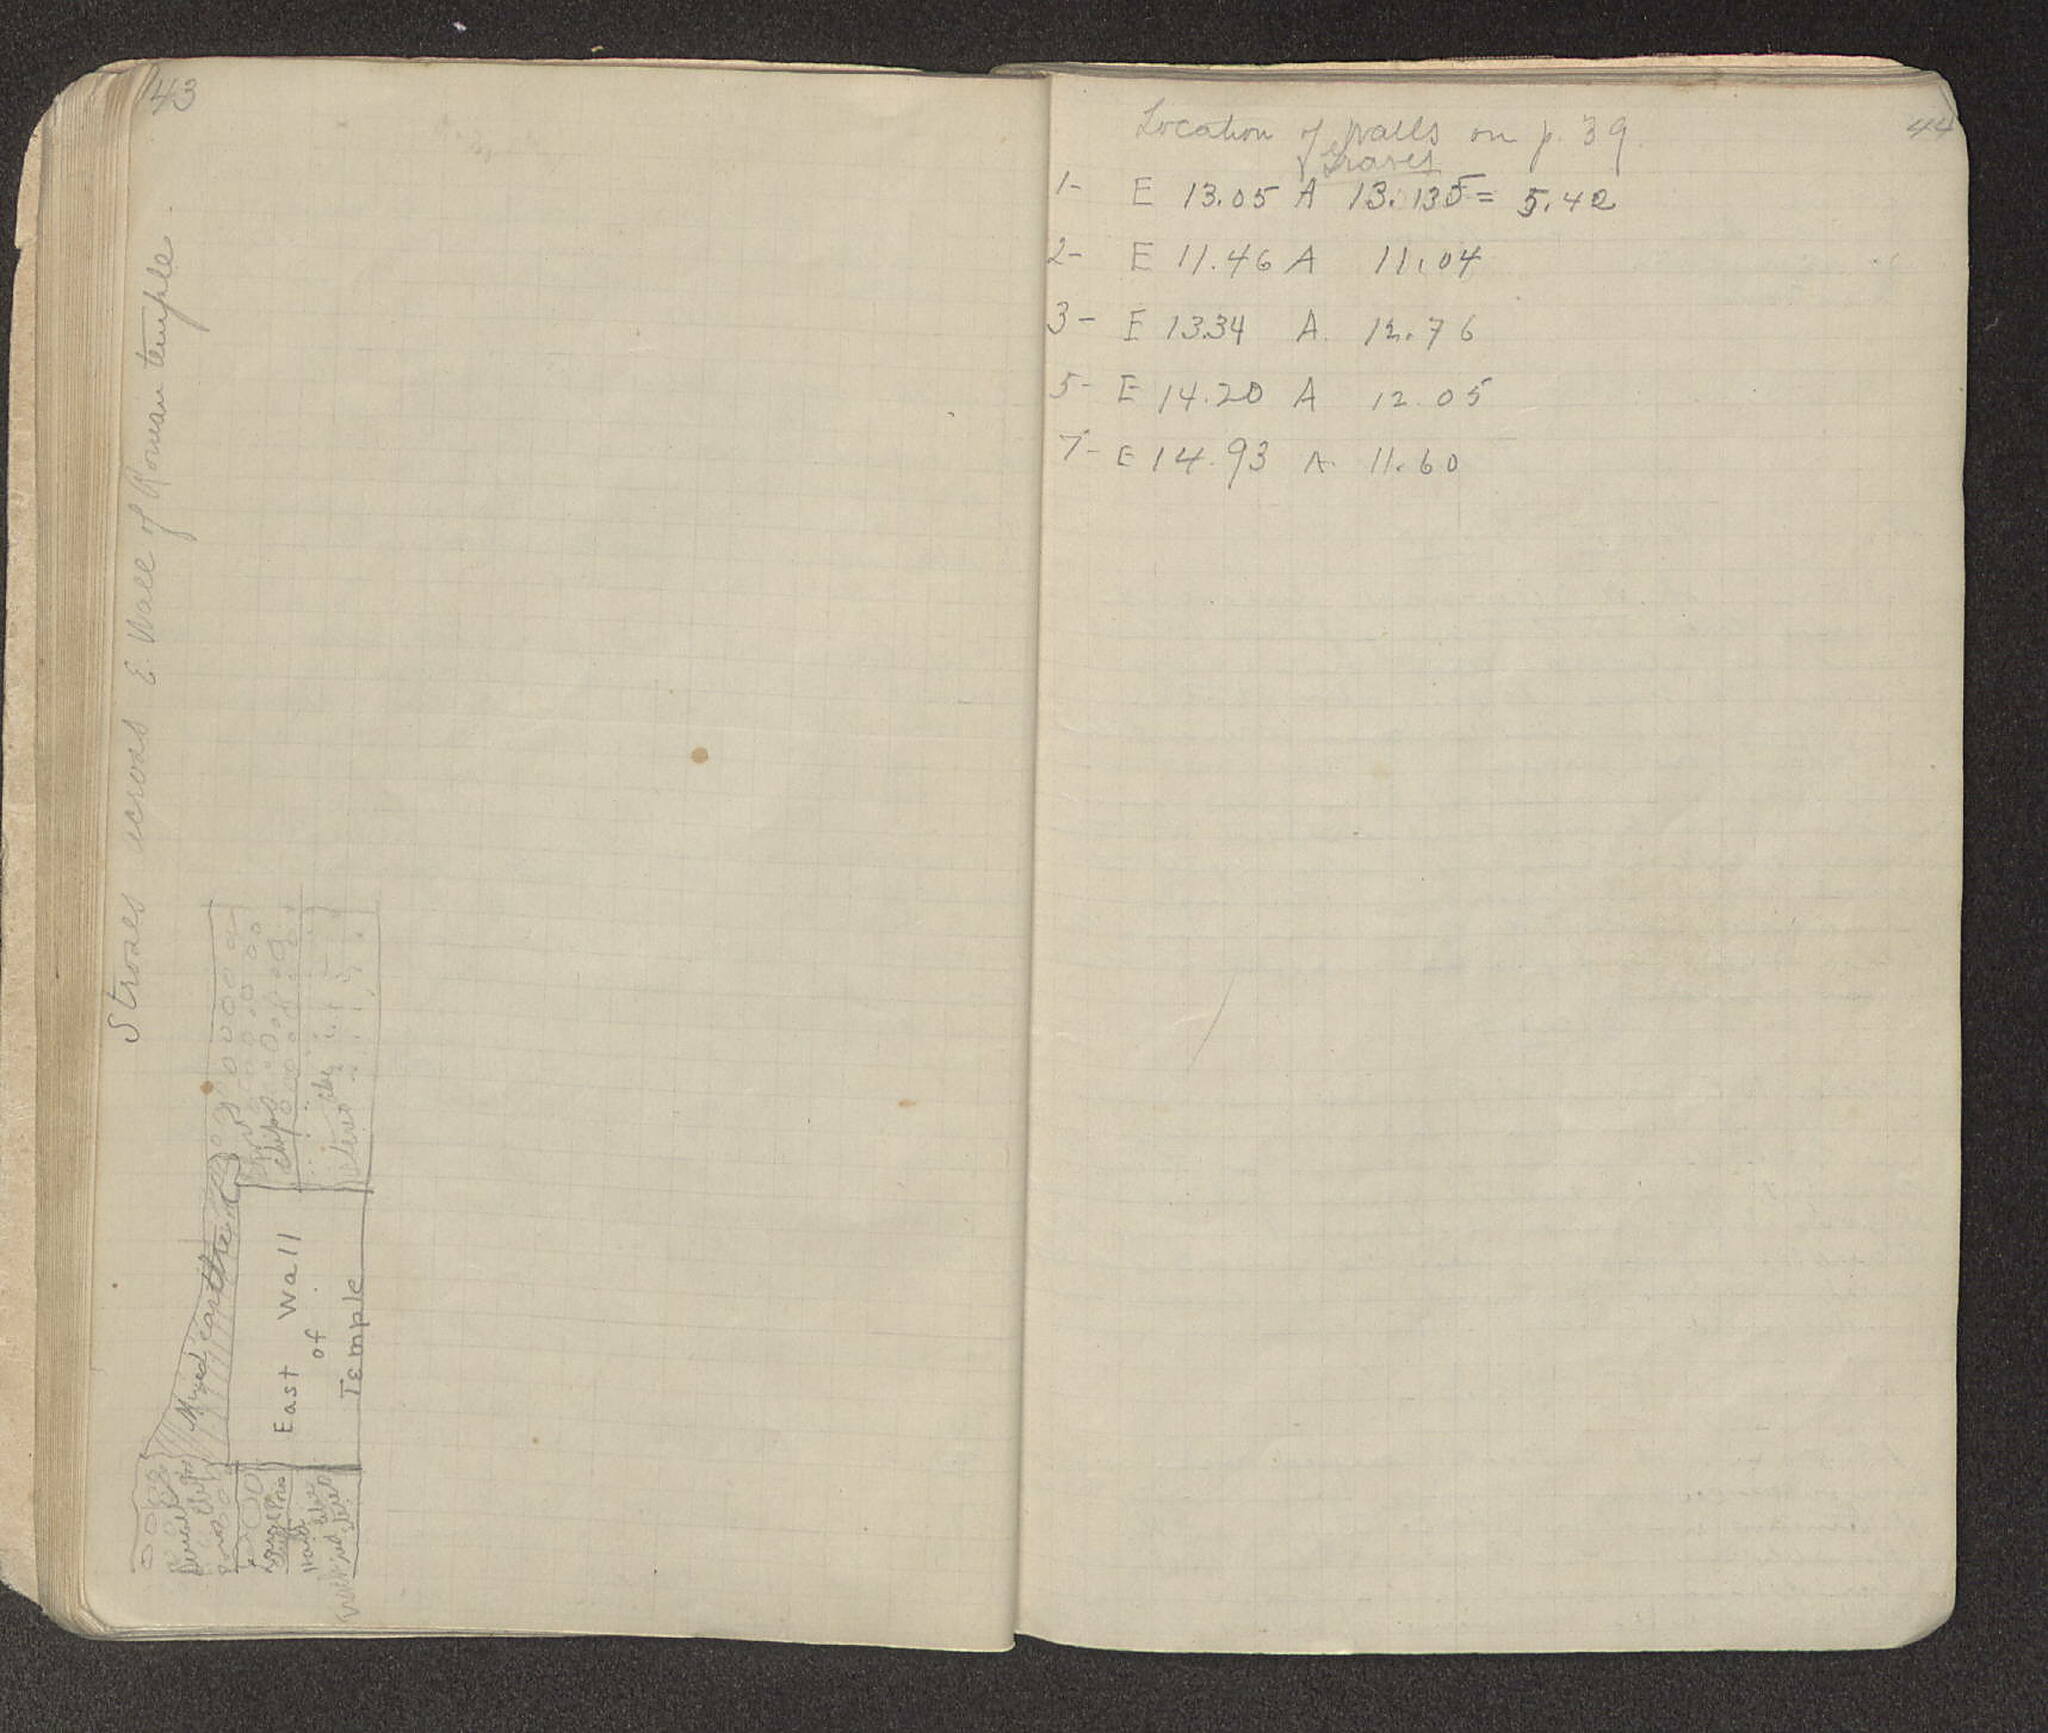 43
Stroses across E. Wall of Roman temple
chips
Mixed earth
East Wall
of
Temple
chips
Hard
44
Location of Walls on p. 39.
Graves
1- E 13.05 A 13.135 = 5.42
2- E 11.46 A 11.04
3- E 13.34 A. 12.76
5- E 14.20 A 12.05
7- E 14.93 A. 11.60